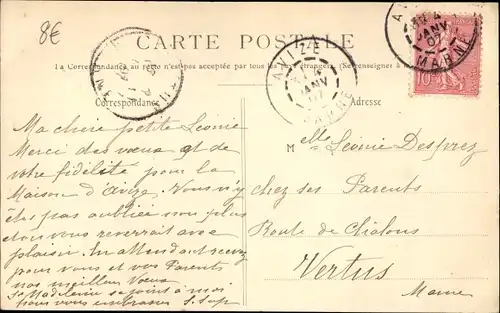 8€
CARTE POSTALE
La Correspondance au recto n'est pas acceptée par tous les pays étrangers. (Se renseigner à la
Correspondance
Adresse
AVIZE
4
JANV
07
MARNE
4
JANV
07
MARNE
10
Ma chère petite Léonie
Merci des vœux et de
votre fidélité pour la
Maison d'Avize. Vous n'y
êtes pas oubliée non plus
et on vous reverrait avec
plaisir. En attendant recevez
pour vous et vos Parents
nos meilleurs Vœux
Sr Madeleine se joint à moi
pour vous embrasser. S. Sup
Melle Léonie Desprez
chez ses Parents
Route de Châlons
Vertus
Marne